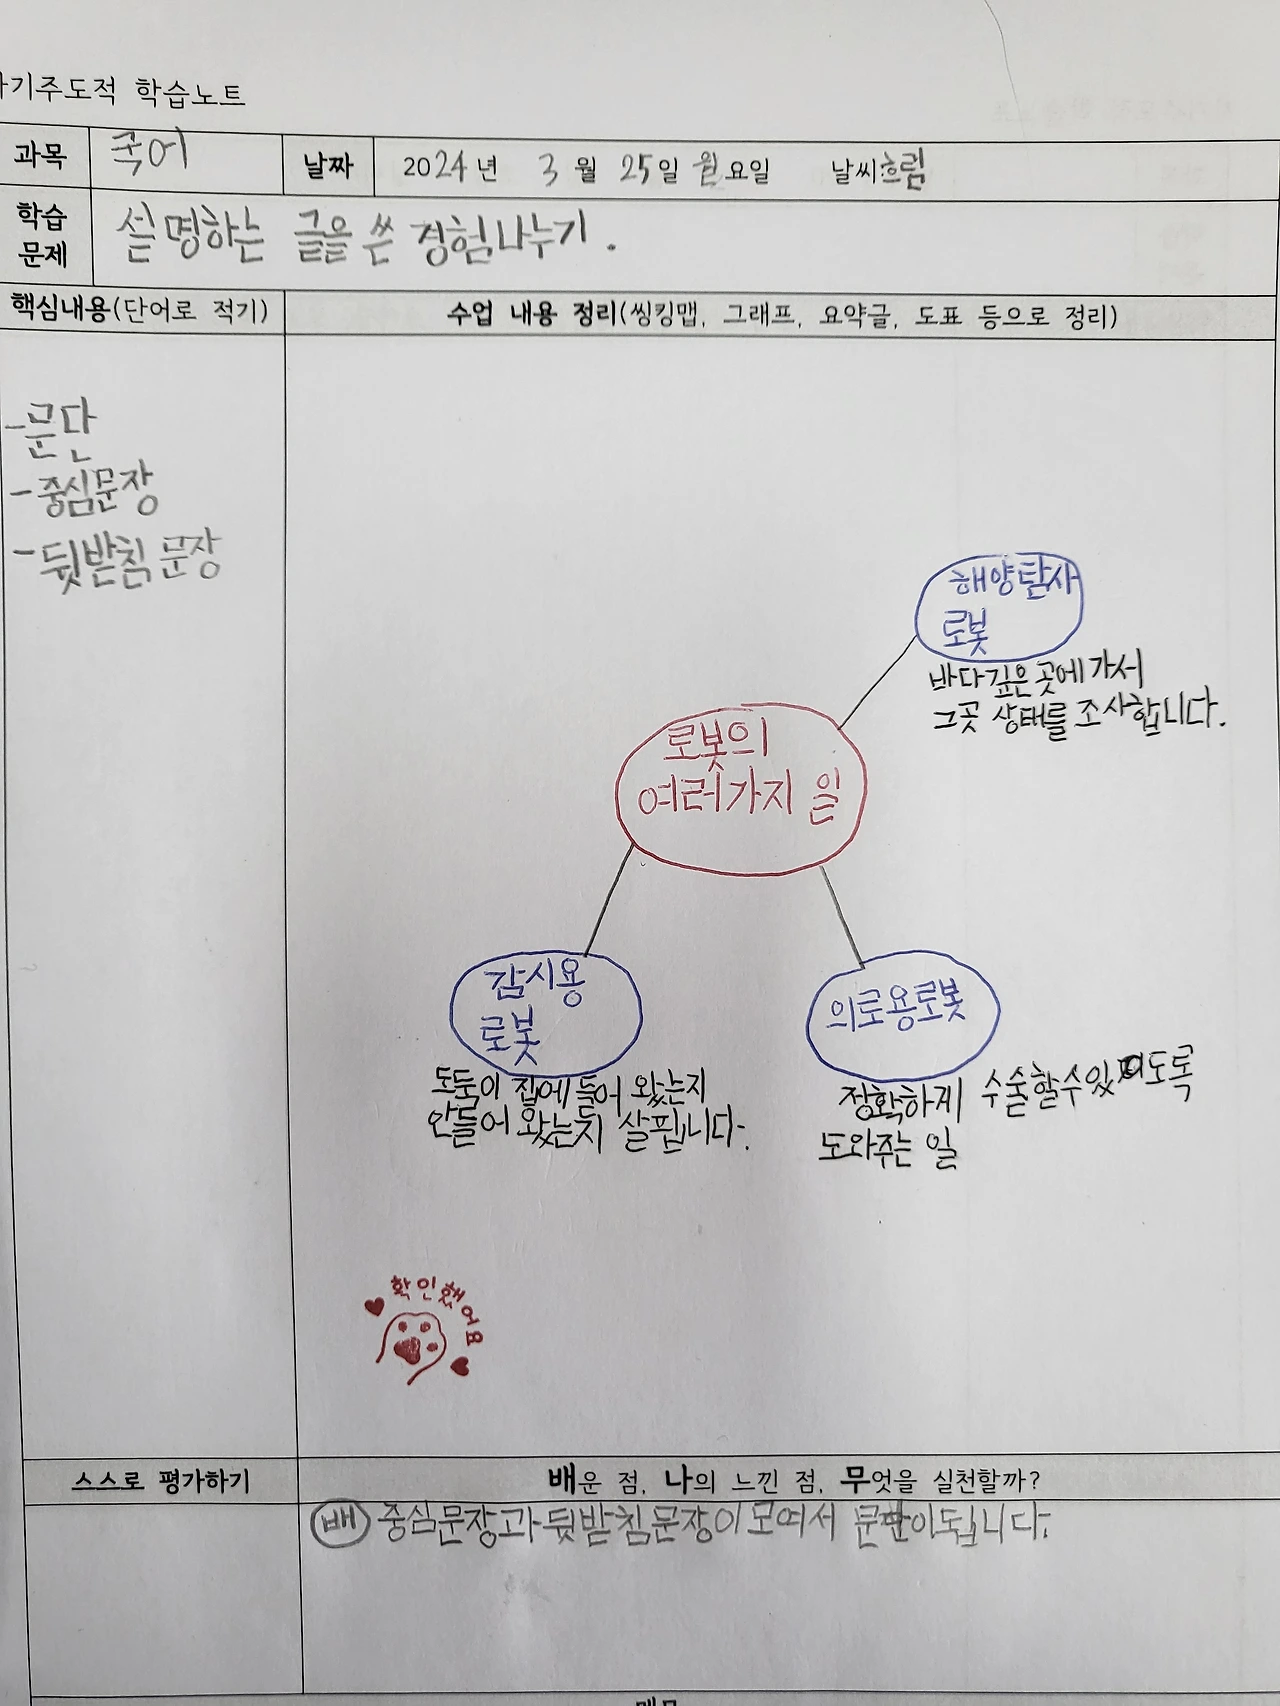 자기주도적 학습노트
과목 국어 날짜 2024년 3월 25일 월요일 날씨:흐림
학습 문제 설명하는 글을 쓴 경험나누기.
핵심내용(단어로 적기) 수업 내용 정리(씽킹맵, 그래프, 요약글, 도표 등으로 정리)
-문단
-중심문장
-뒷받침 문장
해양탐사
로봇
바다깊은곳에가서
그곳 상태를 조사합니다.
로봇의
여러가지 일
감시용
로봇
도둑이 집에 들어 왔는지
안들어 왔는지 살핍니다.
의료용로봇
정확하게 수술할수있도록
도와주는 일
확인했어요
스스로 평가하기 배운 점, 나의 느낀 점, 무엇을 실천할까?
배 중심문장과 뒷받침문장이모여서 문단이됩니다.
메모